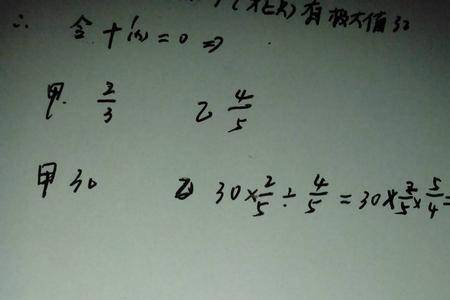 (x∈R)有极大值32
∴ 令 f'(x)=0 ⇒
甲. 2/3 乙 4/5
甲 30 乙 30×2/5÷4/5=30×2/5×5/4=